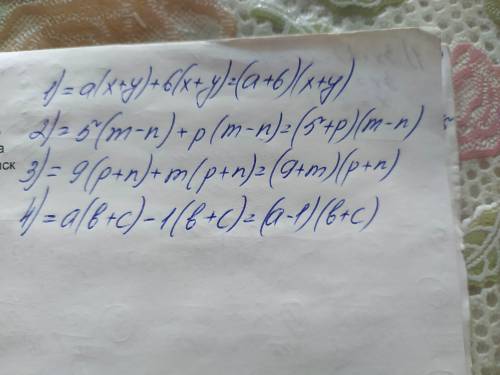 1) = a(x+y)+6(x+y)=(a+6)(x+y)
2) = 5(m-n)+p(m-n)=(5+p)(m-n)
а
3) = 9(p+n)+m(p+n)=(9+m)(p+n)
иск
4) = a(b+c)-1(b+c)=(a-1)(b+c)